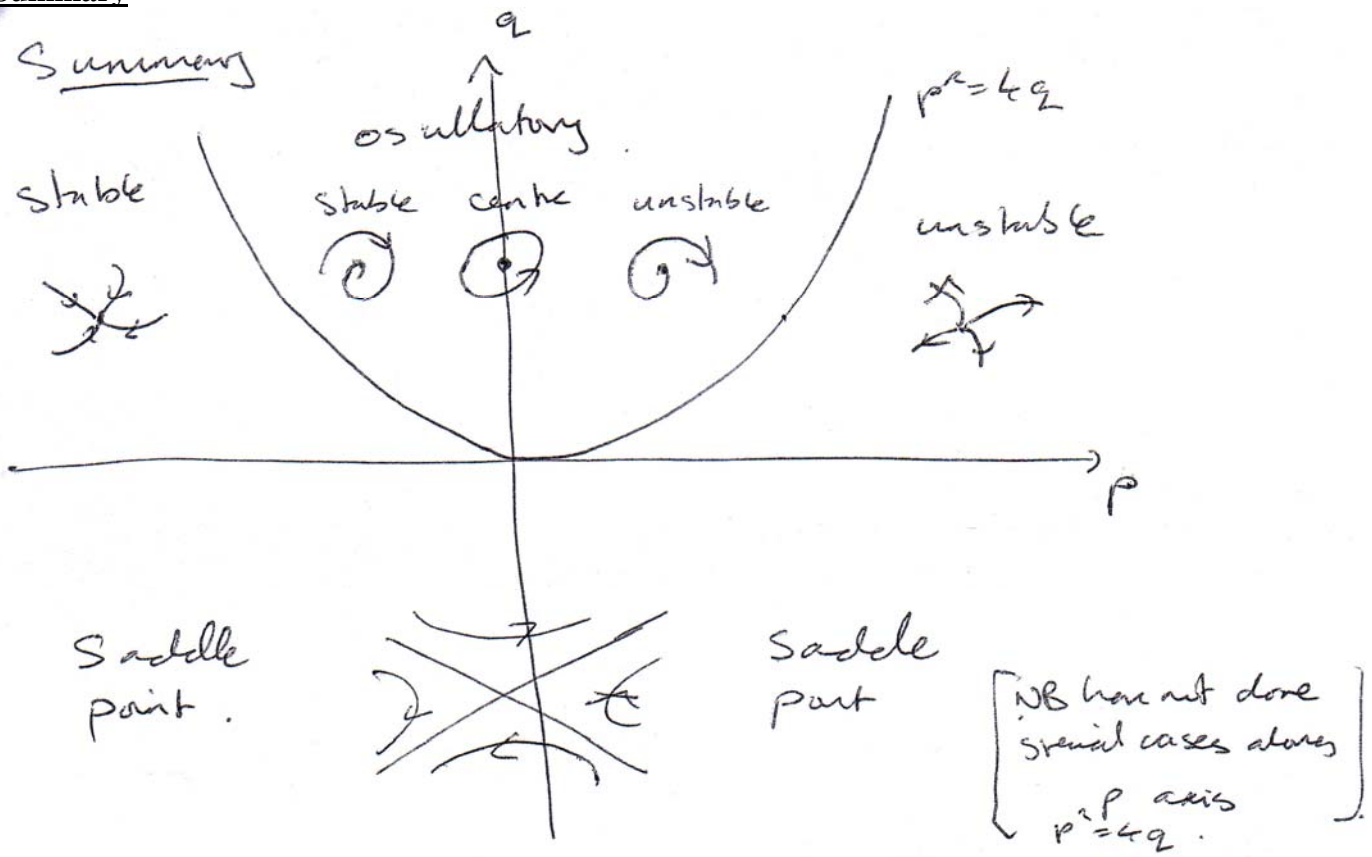 Summary
q
Summary
p²=4q
oscillatory.
stable
stable centre unstable
unstable
p
Saddle
point.
Saddle
point
[NB have not done
special cases along
p axis
p²=4q.]